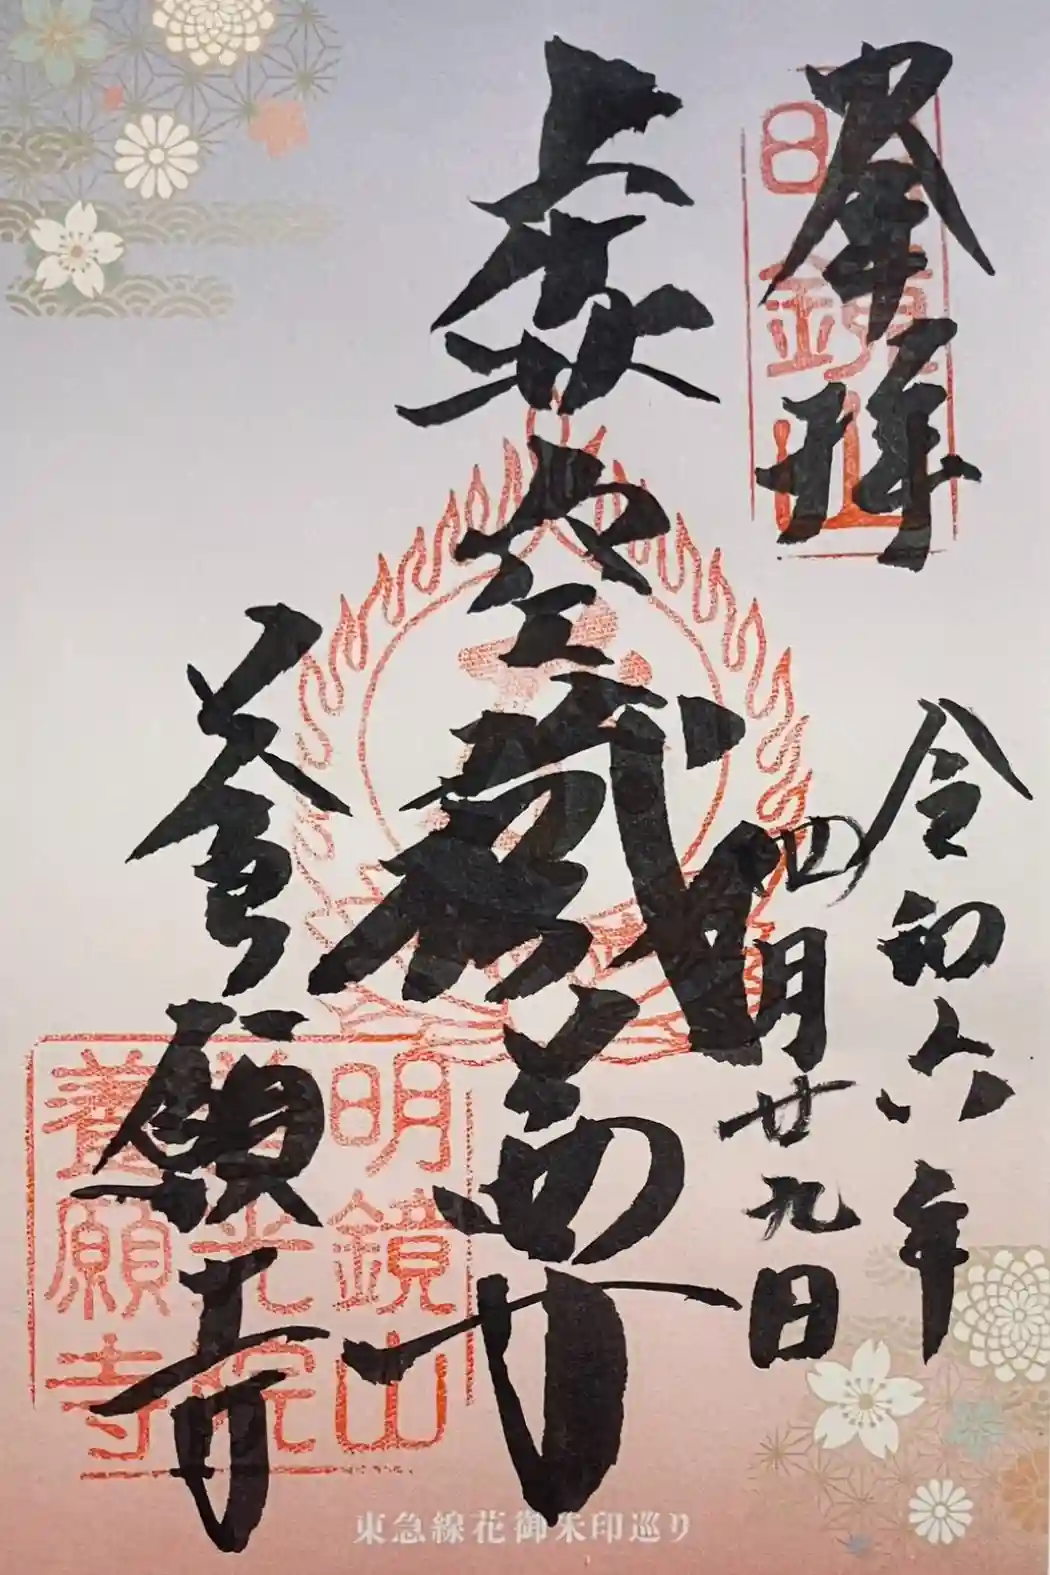 奉拝
明鏡山
令和六年
四月廿九日
虚空蔵尊
養願寺
明鏡山
善光院
養願寺
東急線花御朱印巡り